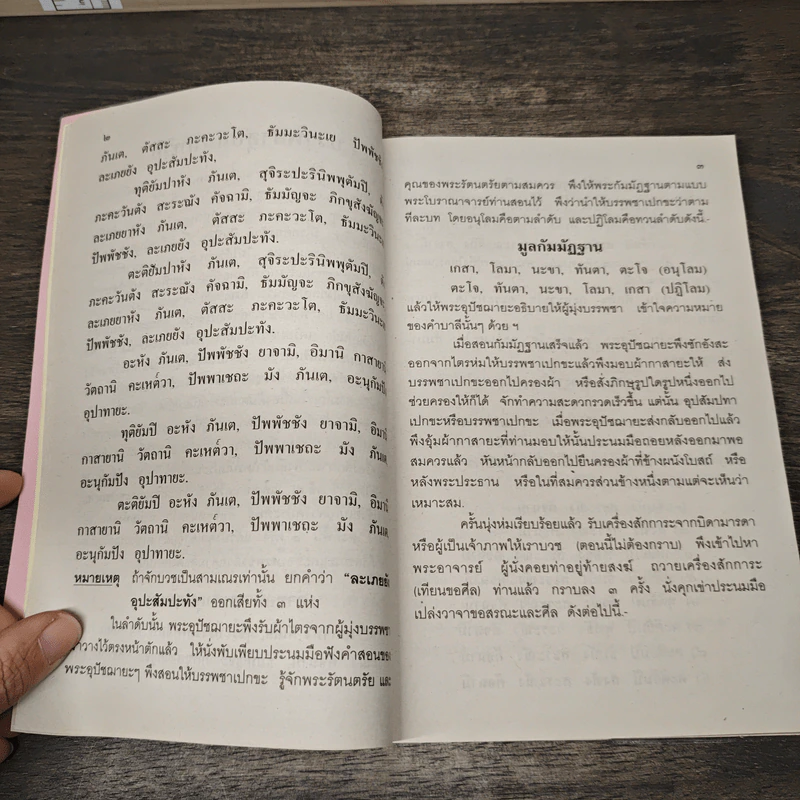 ๒
ภันเต, ตัสสะ ภะคะวะโต, ธัมมะวินะเย ปัพพัชชัง
ละเภยยัง อุปะสัมปะทัง,
ทุติยัมปาหัง ภันเต, สุจิระปะรินิพพุตัมปิ, ตัง
ภะคะวันตัง สะระณัง คัจฉามิ, ธัมมัญจะ ภิกขุสังฆัญจะ,
ละเภยยาหัง ภันเต, ตัสสะ ภะคะวะโต, ธัมมะวินะเย
ปัพพัชชัง, ละเภยยัง อุปะสัมปะทัง.
ตะติยัมปาหัง ภันเต, สุจิระปะรินิพพุตัมปิ,
ภะคะวันตัง สะระณัง คัจฉามิ, ธัมมัญจะ ภิกขุสังฆัญจะ,
ละเภยยาหัง ภันเต, ตัสสะ ภะคะวะโต, ธัมมะวินะเย
ปัพพัชชัง, ละเภยยัง อุปะสัมปะทัง.
อะหัง ภันเต, ปัพพัชชัง ยาจามิ, อิมานิ กาสายานิ
วัตถานิ คะเหต๎วา, ปัพพาเชถะ มัง ภันเต, อะนุกัมปัง
อุปาทายะ.
ทุติยัมปิ อะหัง ภันเต, ปัพพัชชัง ยาจามิ, อิมานิ
กาสายานิ วัตถานิ คะเหต๎วา, ปัพพาเชถะ มัง ภันเต,
อะนุกัมปัง อุปาทายะ.
ตะติยัมปิ อะหัง ภันเต, ปัพพัชชัง ยาจามิ, อิมานิ
กาสายานิ วัตถานิ คะเหต๎วา, ปัพพาเชถะ มัง ภันเต,
อะนุกัมปัง อุปาทายะ.
หมายเหตุ ถ้าจักบวชเป็นสามเณรเท่านั้น ยกคำว่า “ละเภยยัง
อุปะสัมปะทัง” ออกเสียทั้ง ๓ แห่ง
ในลำดับนั้น พระอุปัชฌายะพึงรับผ้าไตรจากผู้มุ่งบรรพชา
วางไว้ตรงหน้าตักแล้ว ให้นั่งพับเพียบประนมมือฟังคำสอนของ
พระอุปัชฌายะๆ พึงสอนให้บรรพชาเปกขะ รู้จักพระรัตนตรัย และ
๓
คุณของพระรัตนตรัยตามสมควร พึงให้พระกัมมัฏฐานตามแบบ
พระโบราณาจารย์ท่านสอนไว้ พึงว่านำให้บรรพชาเปกขะว่าตาม
ทีละบท โดยอนุโลมคือตามลำดับ และปฏิโลมคือทวนลำดับดังนี้.-
มูลกัมมัฏฐาน
เกสา, โลมา, นะขา, ทันตา, ตะโจ (อนุโลม)
ตะโจ, ทันตา, นะขา, โลมา, เกสา (ปฏิโลม)
แล้วให้พระอุปัชฌายะอธิบายให้ผู้มุ่งบรรพชา เข้าใจความหมาย
ของคำบาลีนั้นๆ ด้วย ฯ
เมื่อสอนกัมมัฏฐานเสร็จแล้ว พระอุปัชฌายะพึงชักอังสะ
ออกจากไตรห่มให้บรรพชาเปกขะแล้วพึงมอบผ้ากาสายะให้ ส่ง
บรรพชาเปกขะออกไปครองผ้า หรือสั่งภิกษุรูปใดรูปหนึ่งออกไป
ช่วยครองให้ก็ได้ จักทำความสะดวกรวดเร็วขึ้น แต่นั้น อุปสัมปทา
เปกขะหรือบรรพชาเปกขะ เมื่อพระอุปัชฌายะส่งกลับออกไปแล้ว
พึงอุ้มผ้ากาสายะที่ท่านมอบให้นั้นประนมมือถอยหลังออกมาพอ
สมควรแล้ว หันหน้ากลับออกไปยืนครองผ้าที่ข้างผนังโบสถ์ หรือ
หลังพระประธาน หรือในที่สมควรส่วนข้างหนึ่งตามแต่จะเห็นว่า
เหมาะสม.
ครั้นนุ่งห่มเรียบร้อยแล้ว รับเครื่องสักการะจากบิดามารดา
หรือผู้เป็นเจ้าภาพให้เราบวช (ตอนนี้ไม่ต้องกราบ) พึงเข้าไปหา
พระอาจารย์ ผู้นั่งคอยท่าอยู่ท้ายสงฆ์ ถวายเครื่องสักการะ
(เทียนขอศีล) ท่านแล้ว กราบลง ๓ ครั้ง นั่งคุกเข่าประนมมือ
เปล่งวาจาขอสรณะและศีล ดังต่อไปนี้.-